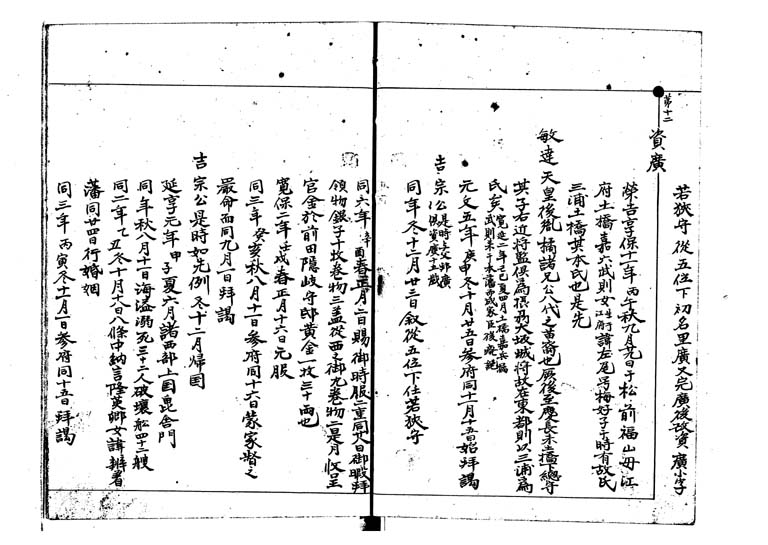 第十二
資廣
若狹守 從五位下 初名里廣又完廣後改資廣小字
榮吉享保十一年丙午秋九月晃日于松前福山母江
府土橋嘉六武則女江府諱左尾号梅好子于時有故氏
三浦土橋其本氏也是先
敏達天皇後胤橘諸兄公八代之苗裔也厥後至慶長末土橋下總守
其子右近將監倶爲摂刕大坂城將故在東都則以三浦爲
氏矣
元文五年庚申冬十月廿五日參府同十一月十五日始拜謁
吉宗公
同年冬十二月廿三日叙從五位下任若狹守
同六年辛酉春正月二日賜御時服二重同廿八日御暇拜
領物銀子十枚卷物三盖從西之御丸卷物二是月收呈
官金於前田隱岐守邸黃金一枚三十兩也
寬保二年壬戌春正月十六日元服
同三年癸亥秋八月十一日參府同十六日蒙家督之
嚴命而同九月一日拜謁
吉宗公是時如先例冬十二月帰国
延享元年甲子夏六月諸西部上国毘舎門
同年秋八月十一日海溢溺死三十二人破壞舩四十二艘
同二年乙丑冬十月十六日八條中納言隆英卿女諱辨着
藩同廿四日行婚姻
同三年丙寅冬十一月一日參府同十五日拜謁